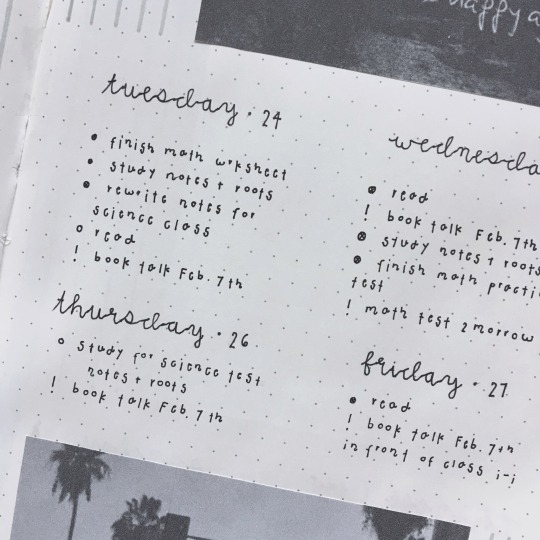 happy a
tuesday · 24
• finish math wrksheet
• study notes + roots
• rewrite notes for
science class
o read
! book talk Feb. 7th
wednesda
⊗ read
! book talk Feb. 7th
⊗ study notes + roots
⊗ finish math practi
test
! math test 2morrow
thursday · 26
o study for science test
notes + roots
! book talk Feb. 7th
friday · 27
• read
! book talk Feb. 7th
in front of class ;-;